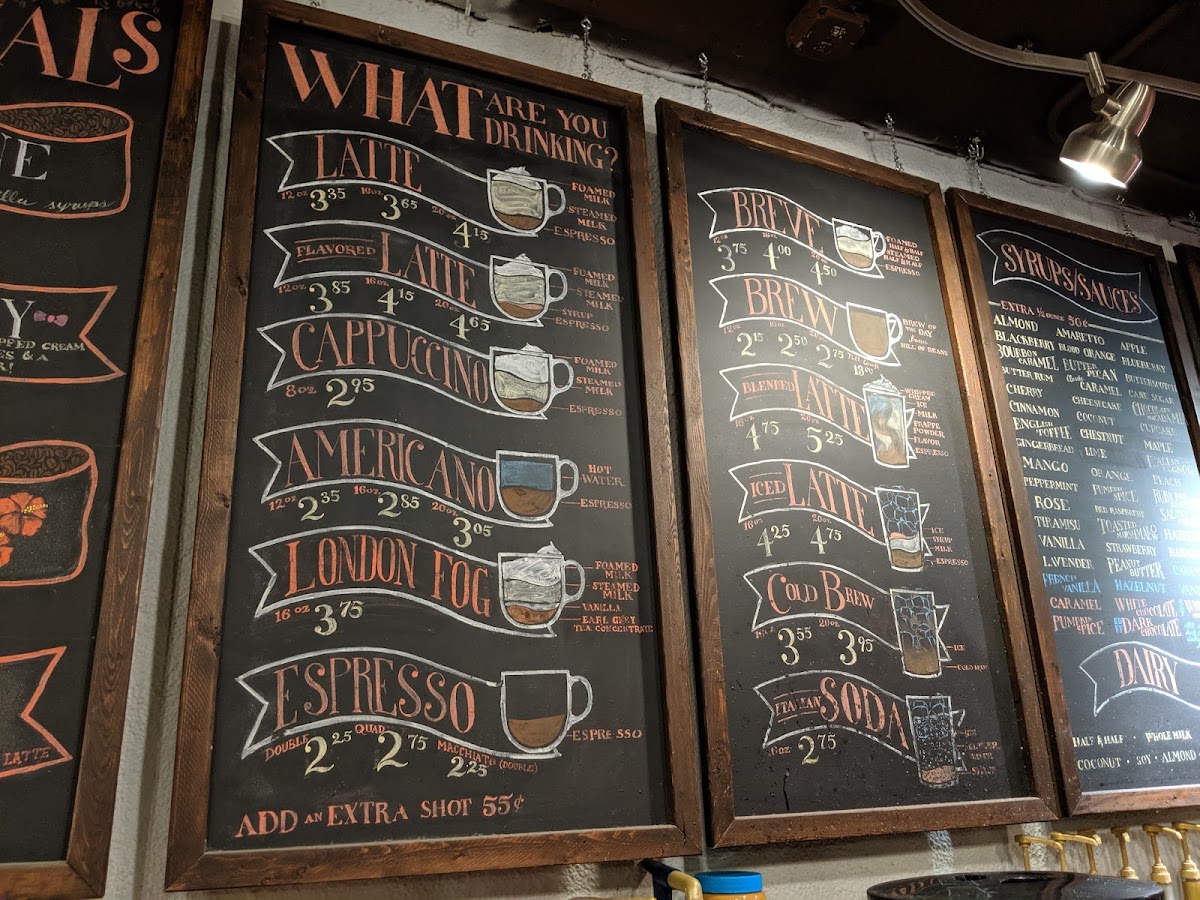 ALS
NE
syrups
Y
CREAM
LATTE
WHAT ARE YOU
DRINKING?
LATTE
12 oz 3.35 16 oz 3.65 20 oz 4.15
FOAMED
MILK
STEAMED
MILK
ESPRESSO
FLAVORED LATTE
12 oz 3.85 16 oz 4.15 20 oz 4.65
FOAMED
MILK
STEAMED
MILK
SYRUP
ESPRESSO
CAPPUCCINO
8 oz 2.95
FOAMED
MILK
STEAMED
MILK
ESPRESSO
AMERICANO
12 oz 2.35 16 oz 2.85 20 oz 3.05
HOT
WATER
ESPRESSO
LONDON FOG
16 oz 3.75
FOAMED
MILK
STEAMED
MILK
VANILLA
EARL GREY
TEA CONCENTRATE
ESPRESSO
DOUBLE 2.25 QUAD 2.75 MACCHIATO (DOUBLE) 2.25
ESPRESSO
ADD AN EXTRA SHOT 55¢
BREVE
12 oz 3.75 16 oz 4.00 20 oz 4.50
FOAMED
HALF & HALF
STEAMED
HALF & HALF
ESPRESSO
BREW
12 oz 2.15 16 oz 2.50 20 oz 2.75
18.00
BREW OF
THE DAY
from
HILL OF BEANS
BLENDED LATTE
16 oz 4.75 20 oz 5.25
WHIPPED
CREAM
ICE
MILK
FRAPPE
POWDER
FLAVOR
ESPRESSO
ICED LATTE
16 oz 4.25 20 oz 4.75
ICE
SYRUP
MILK
ESPRESSO
COLD BREW
16 oz 3.55 20 oz 3.95
ICE
COLD BREW
ITALIAN SODA
16 oz 2.75
SYRUPS/SAUCES
EXTRA ½ OUNCE 50¢
ALMOND AMARETTO APPLE
BLACKBERRY BLOOD ORANGE BLUEBERRY
BOURBON CARAMEL BUTTER PECAN BUTTERSCOTCH
BUTTER RUM CARAMEL CANE SUGAR
CHERRY CHEESECAKE CHOCOLATE MACADAMIA
CINNAMON COCONUT CUPCAKE
ENGLISH TOFFEE CHESTNUT
GINGERBREAD LIME MAPLE
MANGO ORANGE PEACH
PEPPERMINT PUMPKIN SPICE
ROSE RED RASPBERRY
TIRAMISU TOASTED MARSHMALLOW
VANILLA STRAWBERRY
LAVENDER PEANUT BUTTER
FRENCH VANILLA HAZELNUT
CARAMEL WHITE CHOCOLATE
PUMPKIN SPICE DARK CHOCOLATE
DAIRY
HALF & HALF • WHOLE MILK
COCONUT • SOY • ALMOND